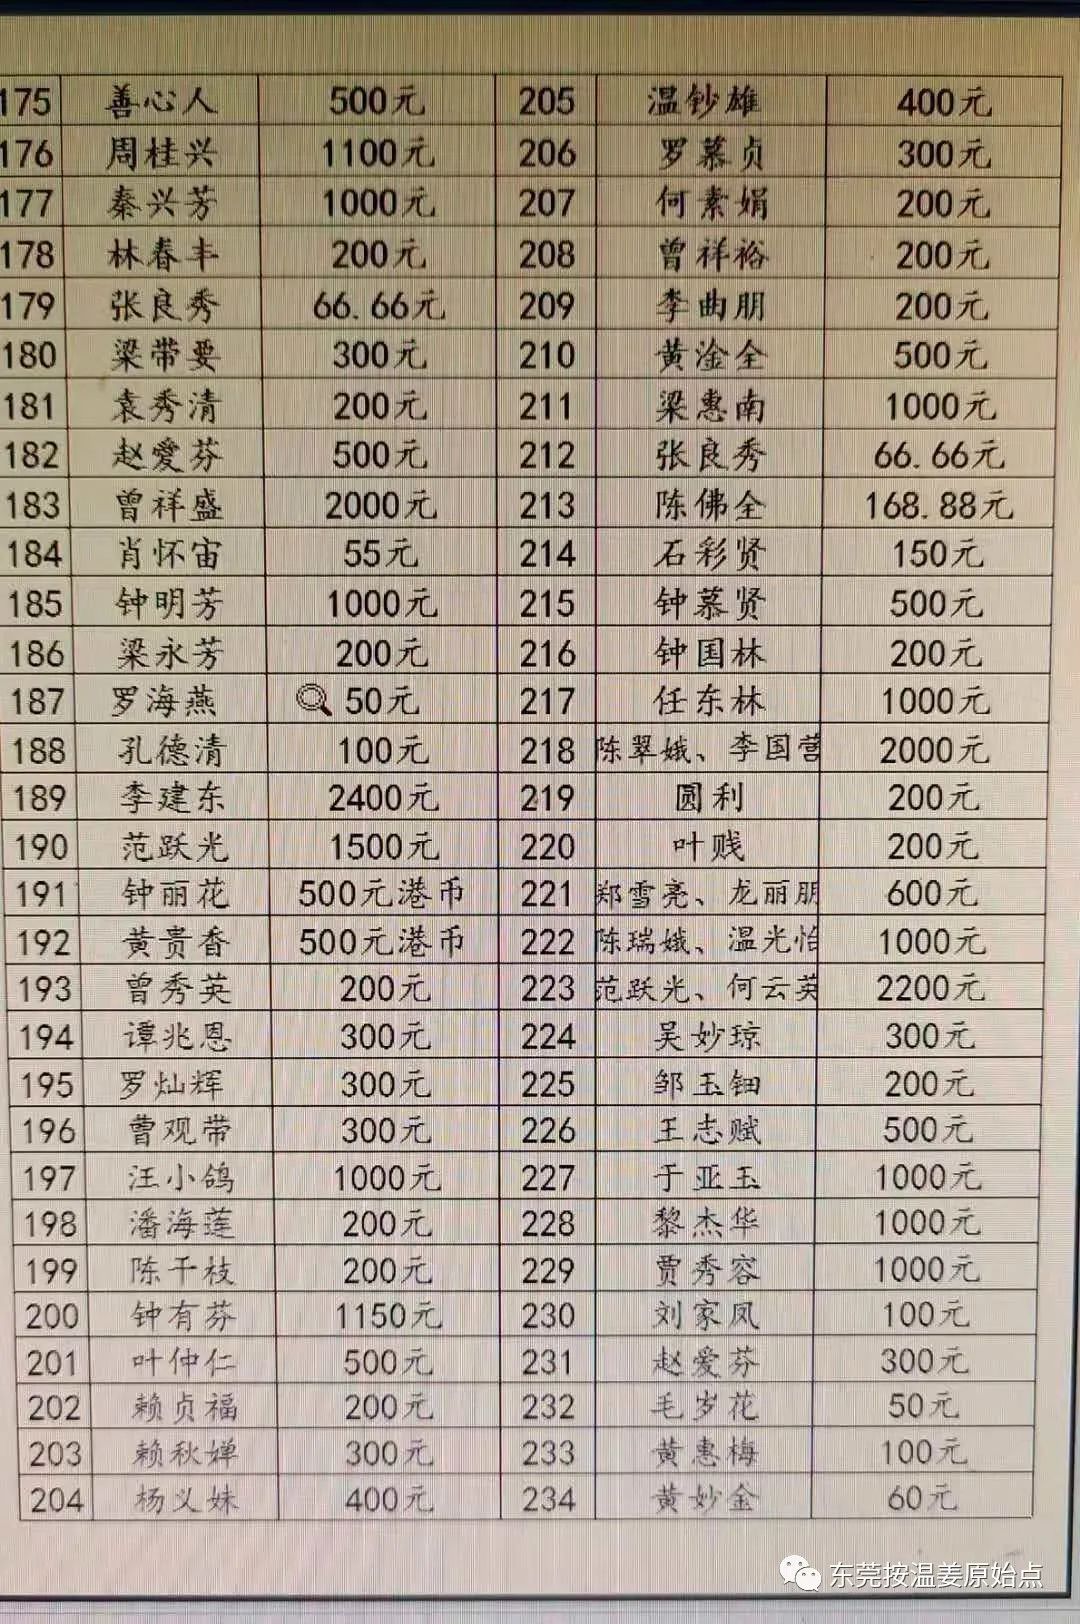 175 善心人 500元 205 温钞雄 400元
176 周桂兴 1100元 206 罗慕贞 300元
177 秦兴芳 1000元 207 何素娟 200元
178 林春丰 200元 208 曾祥裕 200元
179 张良秀 66.66元 209 李曲朋 200元
180 梁带要 300元 210 黄淦全 500元
181 袁秀清 200元 211 梁惠南 1000元
182 赵爱芬 500元 212 张良秀 66.66元
183 曾祥盛 2000元 213 陈佛全 168.88元
184 肖怀宙 55元 214 石彩贤 150元
185 钟明芳 1000元 215 钟慕贤 500元
186 梁永芳 200元 216 钟国林 200元
187 罗海燕 50元 217 任东林 1000元
188 孔德清 100元 218 陈翠娥、李国营 2000元
189 李建东 2400元 219 圆利 200元
190 范跃光 1500元 220 叶贱 200元
191 钟丽花 500元港币 221 郑雪亮、龙丽朋 600元
192 黄贵香 500元港币 222 陈瑞娥、温光怡 1000元
193 曾秀英 200元 223 范跃光、何云英 2200元
194 谭兆恩 300元 224 吴妙琼 300元
195 罗灿辉 300元 225 邹玉钿 200元
196 曹观带 300元 226 王志赋 500元
197 汪小鸽 1000元 227 于亚玉 1000元
198 潘海莲 200元 228 黎杰华 1000元
199 陈干枝 200元 229 贾秀容 1000元
200 钟有芬 1150元 230 刘家凤 100元
201 叶仲仁 500元 231 赵爱芬 300元
202 赖贞福 200元 232 毛岁花 50元
203 赖秋婵 300元 233 黄惠梅 100元
204 杨义妹 400元 234 黄妙金 60元
东莞按温姜原始点